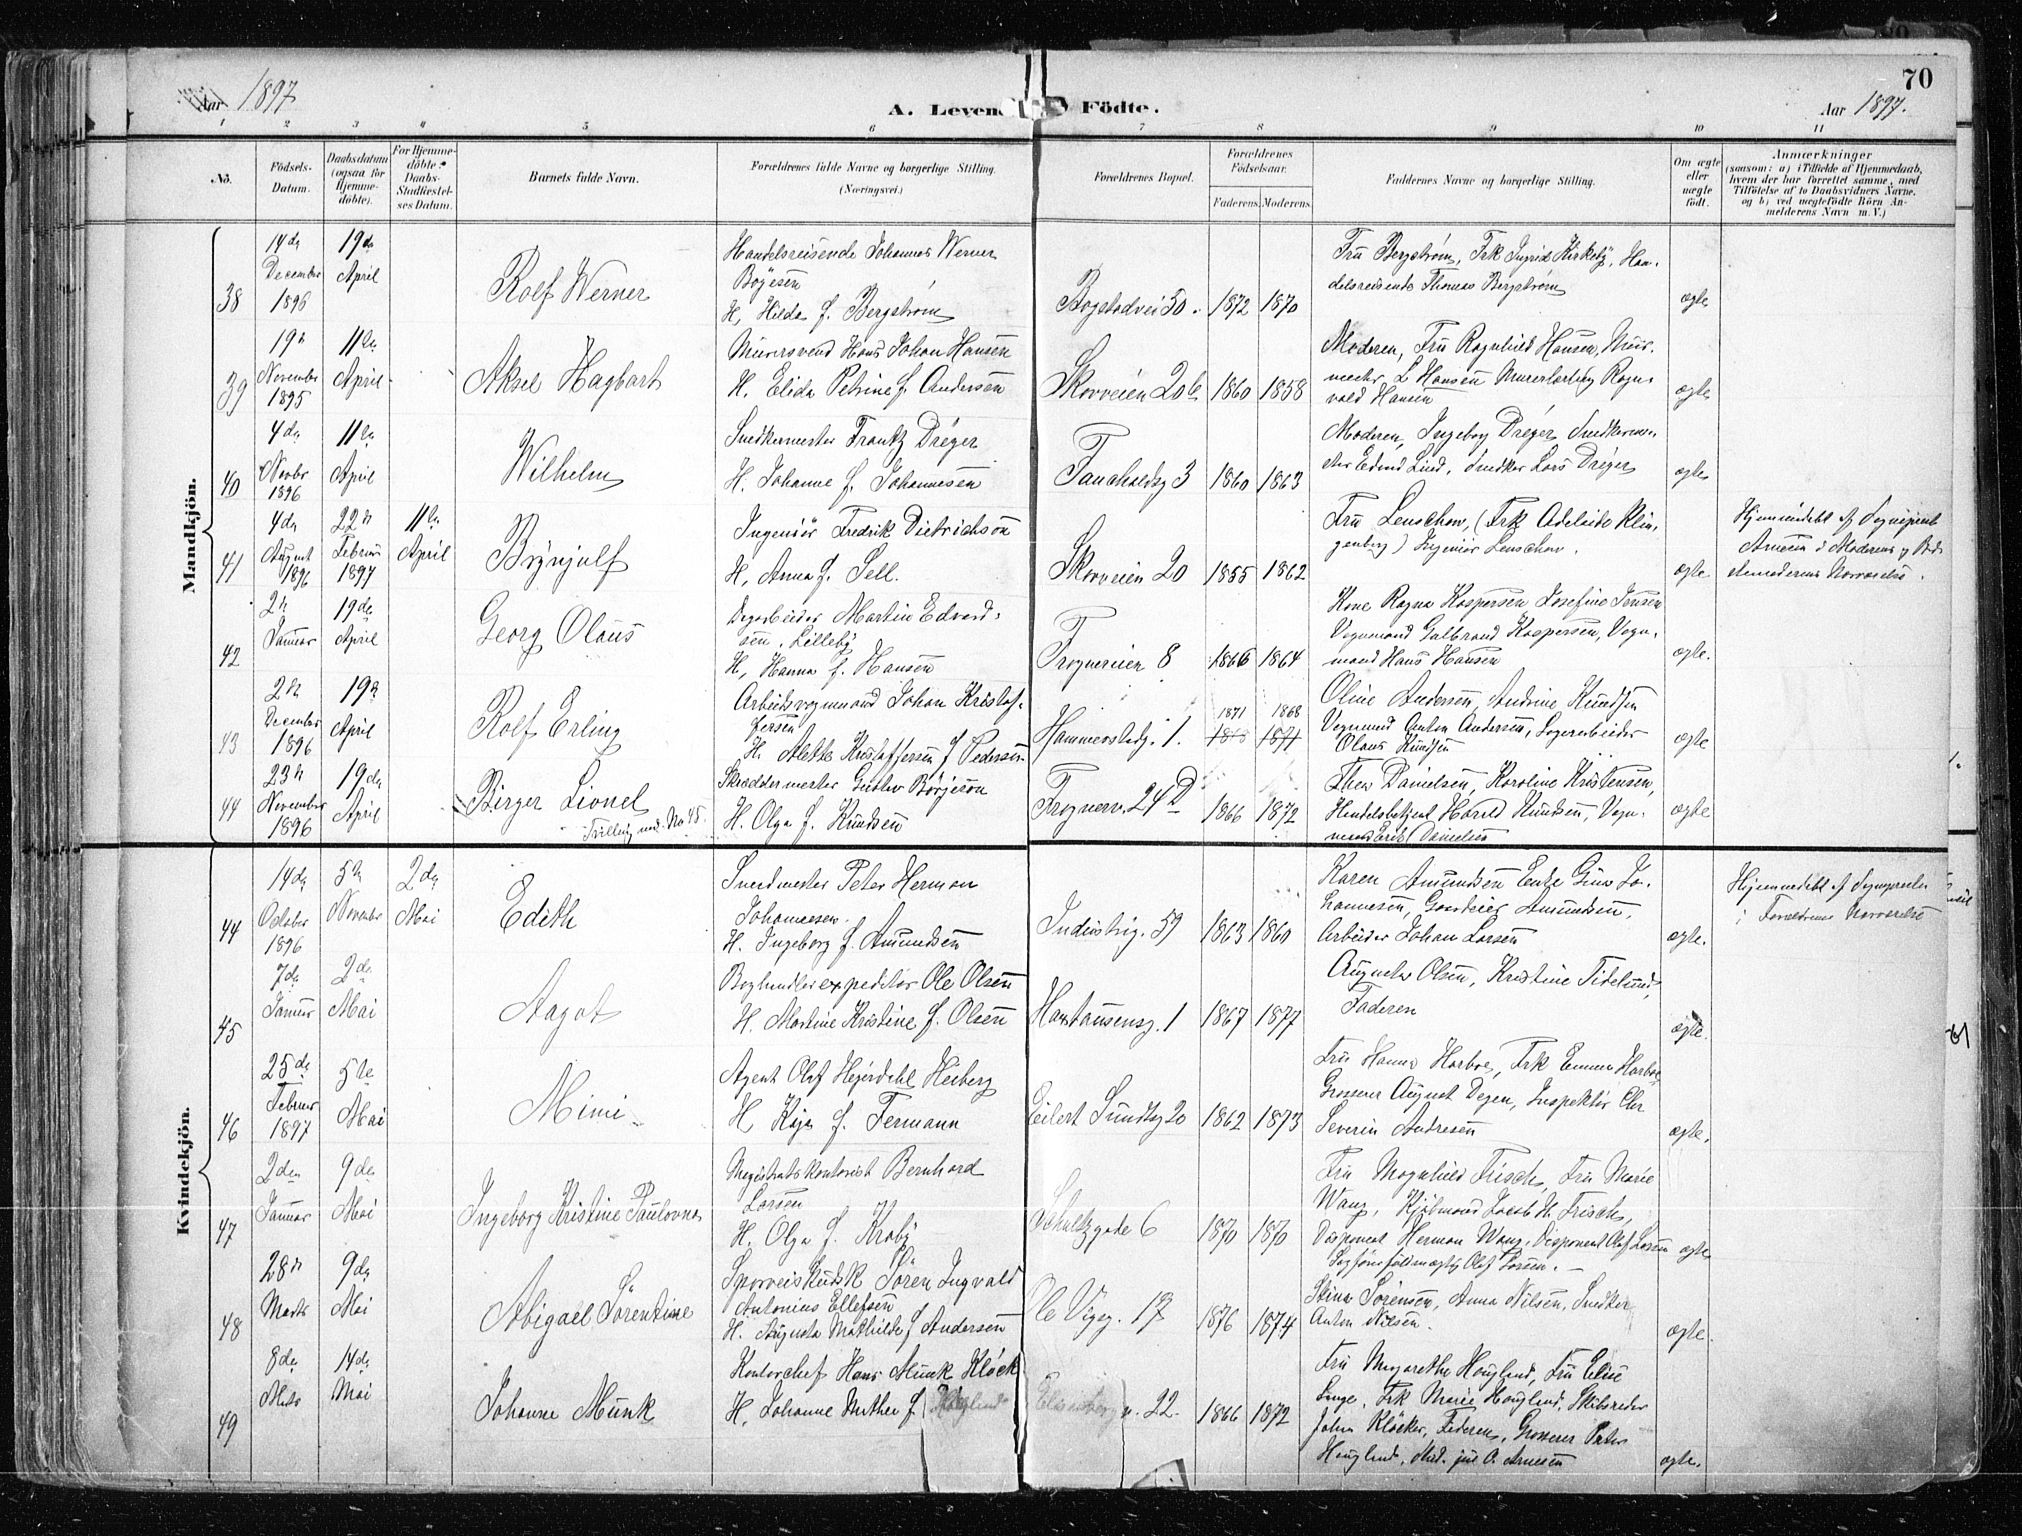 70
Aar 1897
A. Leven Födte.
Aar 1897.
1 2 3 4 5 6 7 8 9 10 11
No.
Födsels-
Datum.
Daabsdatum
(ogsaa for
Hjemme-
döbte).
For Hjemme-
döbte:
Daabs-
Stadfæstel-
ses Datum.
Barnets fulde Navn.
Forældrenes fulde Navne og borgerlige Stilling.
(Næringsvei.)
Forældrenes Bopæl.
Forældrenes
Födselsaar.
Faderens.
Moderens.
Faddernes Navne og borgerlige Stilling.
Om ægte
eller
uægte
födt.
Anmærkninger
(saasom: a) i Tilfælde af Hjemmedaab,
hvem der har forrettet samme, med
Tilföielse af to Daabsvidners Navne,
og b) ved uægtefödte Börn An-
melderens Navn m. V.)
Mandkjön.
38
14de
December
1896
19de
April
Rolf Werner
Handelsreisende Johannes Werner
Böyesen
H. Hilda f. Bergström
Bogstadvei 50.
1872
1870
Fru Bergström, Frk Ingrid Kirkeby, Han-
delsreisende Thomas Bergström
ægte
39
19n
November
1895
11te
April
Aksel Hagbart
Murersvend Hans Johan Hansen
H. Elida Petrine f. Andersen
Skovveien 20b
1860
1858
Moderen, Fru Ragnhild Hansen, Mur-
mester L Hansen Murerlærling Ragn-
vald Hansen
ægte
40
4de
Novbr
1896
11te
April
Wilhelm
Snedkermester Frantz Dréyer
H. Johanne f. Johannesen
Fauchaldsg 3
1860
1863
Moderen, Ingeborg Dréyer, Snedkermes-
ter Edvard Lind, Snedker Lars Dréyer
ægte
41
4de
August
1896
22n
Februar
1897
11te
April
Brynjulf
Ingeniör Fredrik Dietrichson
H. Anna f. Sell.
Skovveien 20
1855
1862
Fru Lenschow, (Frk Adelaide Klin-
genberg) Ingeniör Lenschow.
ægte
Hjemmedøbt af Sogneprest
Arnesen i Moderens og Bed-
stemoderens Nærværelse.
42
2n
Januar
19de
April
Georg Olaus
Dagarbeider Martin Edvard-
sen Lilleby
H. Hanna f. Hansen
Frognerveien 8
1866
1864
Kone Ragna Kaspersen Josefine Jensen
Vognmand Gulbrand Kaspersen, Vogn-
mand Hans Hansen
ægte.
43
2n
December
1896
19n
April
Rolf Erling
Arbeidsvognmand Johan Kristof-
fersen
H. Alette Kristoffersen f Pedersen
Hammerstadg. 1.
1871
1868
1871
Oline Andersen, Andrine Knudsen
Vognmand Anton Andersen, Lagerarbeider
Olaus Knudsen
ægte
44
23n
November
1896
19de
April
Birger Lionel
Tvilling med No 45.
Skræddermester Gustav Börjeson
H. Olga f. Knudsen
Frognerv. 24D
1866
1872
Thea Danielsen, Karoline Kristensen,
Handelsbetjent Harald Knudsen, Vogn-
mand Erik Danielsen
ægte
Kvindekjön.
44
14de
October
1896
5te
November
2de
Mai
Edith
Svendmester Peter Herman
Johannesen.
H. Ingeborg f. Amundsen
Industrig. 59
1863
1860
Karen Amundsen Enke Gina Jo-
hannesen, Gaardeier Amundsen,
Arbeider Johan Larsen
ægte.
Hjemmedøbt af Sogneprest
i Forældrenes Nærværelse
45
7de
Januar
2de
Mai
Aagot
Boghandlerexpeditör Ole Olsen
H. Martine Kristine f. Olsen
Hansteensg. 1
1867
1877
Augusta Olsen, Kristine Tidelsund,
Faderen
ægte.
46
25de
Februar
1897
5te
Mai
Mimi
Agent Olaf Hejerdahl Heiberg
H Kaja f. Fermann
Eilert Sundtsg 20
1862
1873
Fru Hanna Harboe, Frk Emma Harboe,
Grosserer August Degen, Inspektör Chr
Severin Andresen
ægte.
47
2den
Januar
9de
Mai
Ingeborg Kristine Paulovna
Magistratskontorist Bernhard
Larsen
H. Olga f. Kraby
Schultzgade 6
1870
1870
Fru Magnhild Frisch, Fru Marie
Wang, Kjöbmand Jacob H. Frisch,
Disponent Herman Wang, Disponent Olaf Larsen
Sagförerfuldmægtig Olaf Larsen.
ægte
48
28n
Marts
9de
Mai
Abigael Sörentine
Sporveiskudsk Sören Ingvald
Antonius Ellefsen
H. Augusta Mathilde f Andersen
Ole Vigsg. 17
1876
1874
Stina Sörensen, Anna Nilsen, Snedker
Anton Nilsen.
ægte.
49
8de
Marts
14de
Mai
Johanne Munk
Kontorchef Hans Munk Klöck
H. Johanne Mathea f. Houglund
Elisenberg v. 22.
1866
1872
Fru Margarethe Houglund, Fru Elise
Lange, Frk Marie Houglund, Skibsreder
John Klöcker, Faderen, Grosserer Peter
Houglund, Stud. jur O. Arnesen
ægte.